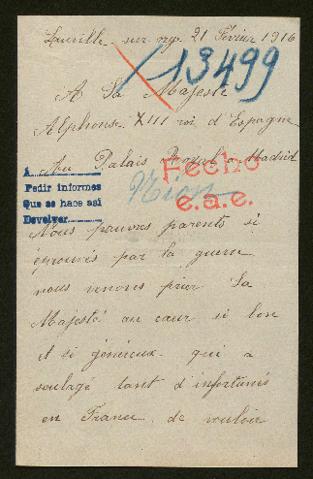 Lucville sur mer 21 Février 1916
13499
A Sa Majesté
Alphonse XIII roi d'Espagne
Au Palais Royal a Madrid
Fecho
e.a.e.
A
Pedir informes
Que se hace asi
Devolver
Nion
Nous pauvres parents si
éprouvés par la guerre
nous venons prier Sa
Majesté au cœur si bon
et si généreux qui a
soulagé tant d'infortunés
en France de vouloir